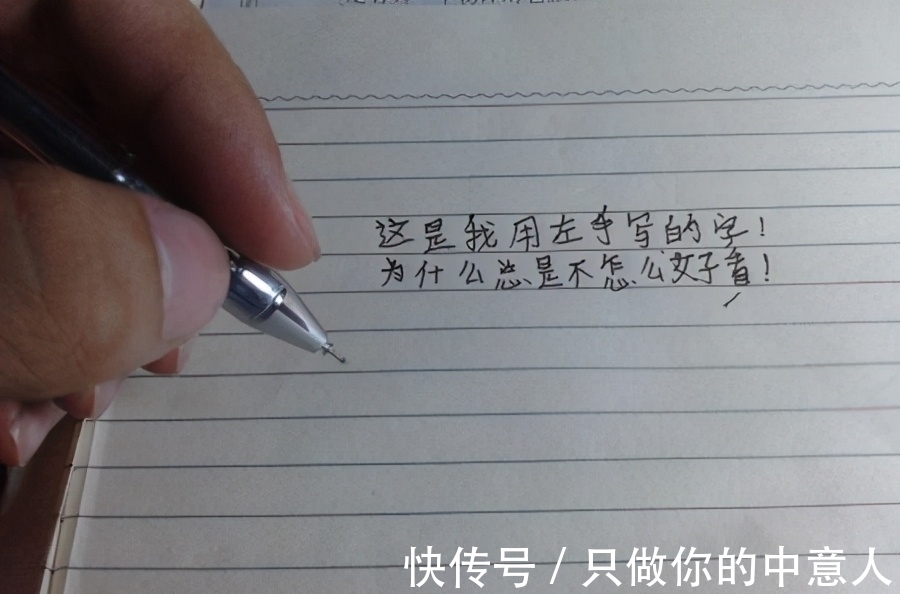 这是我用左手写的字！
为什么总是不怎么好看！
快传号 / 只做你的中意人